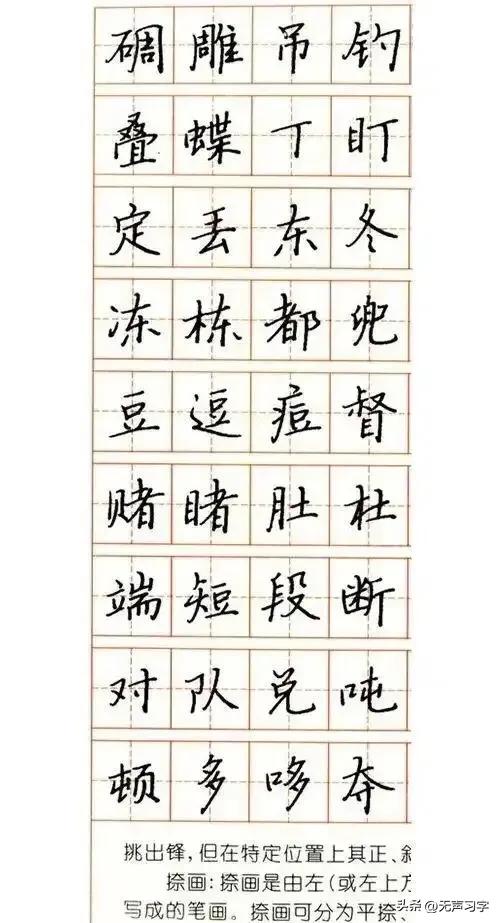 碉雕吊钓
叠蝶丁盯
定丢东冬
冻栋都兜
豆逗痘督
赌睹肚杜
端短段断
对队兑吨
顿多哆夺
挑出锋,但在特定位置上其正、斜
捺画:捺画是由左(或左上方
写成的笔画。捺画可分为平捺、
头条@无声习字